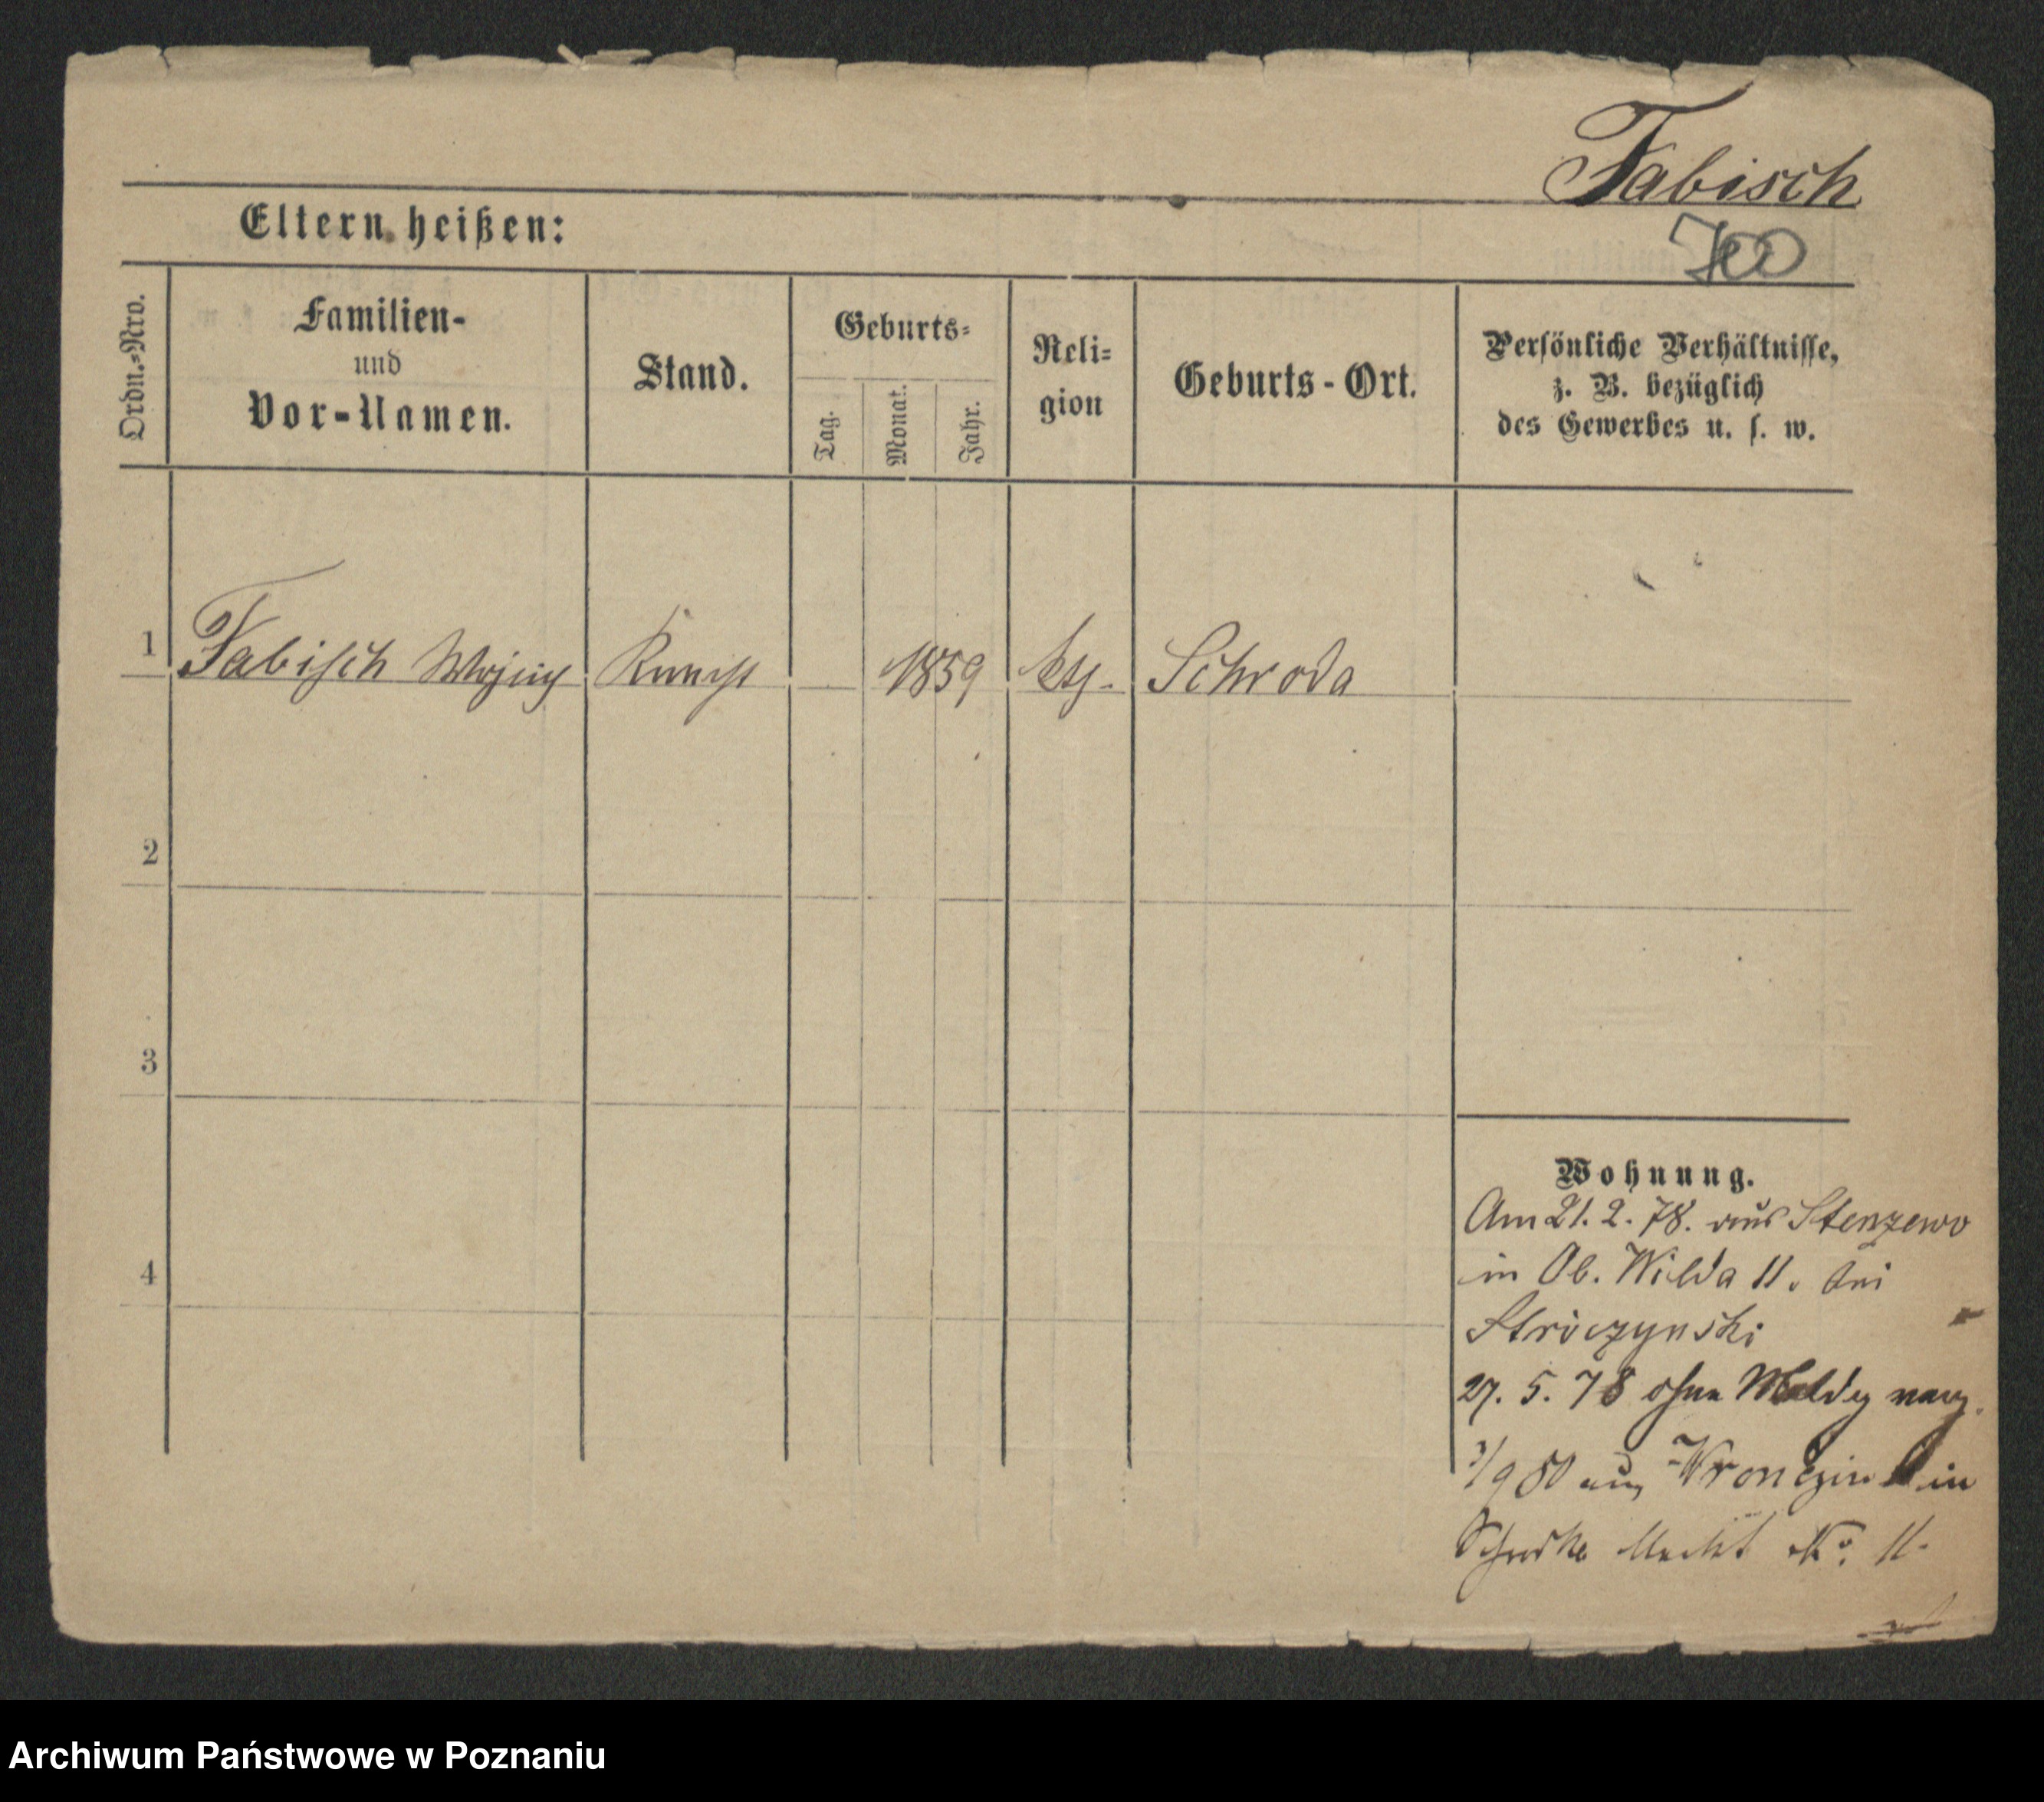 Fabisch
700
Eltern heißen:
Ordn.=Nro.
Familien-
und
Vor-Namen.
Stand.
Geburts=
Tag.
Monat.
Jahr.
Reli=
gion
Geburts-Ort.
Persönliche Verhältnisse,
z. B. bezüglich
des Gewerbes u. s. w.
1 Fabisch Knecht 1859 kth. Schroda
2
3
4
Wohnung.
Am 21. 2. 78. aus Stenzewo
in Ob. Wilda 11. bei
Stroczynski
27. 5. 78 ohne Meldg
aus Wronczin in
No. 11.
Archiwum Państwowe w Poznaniu